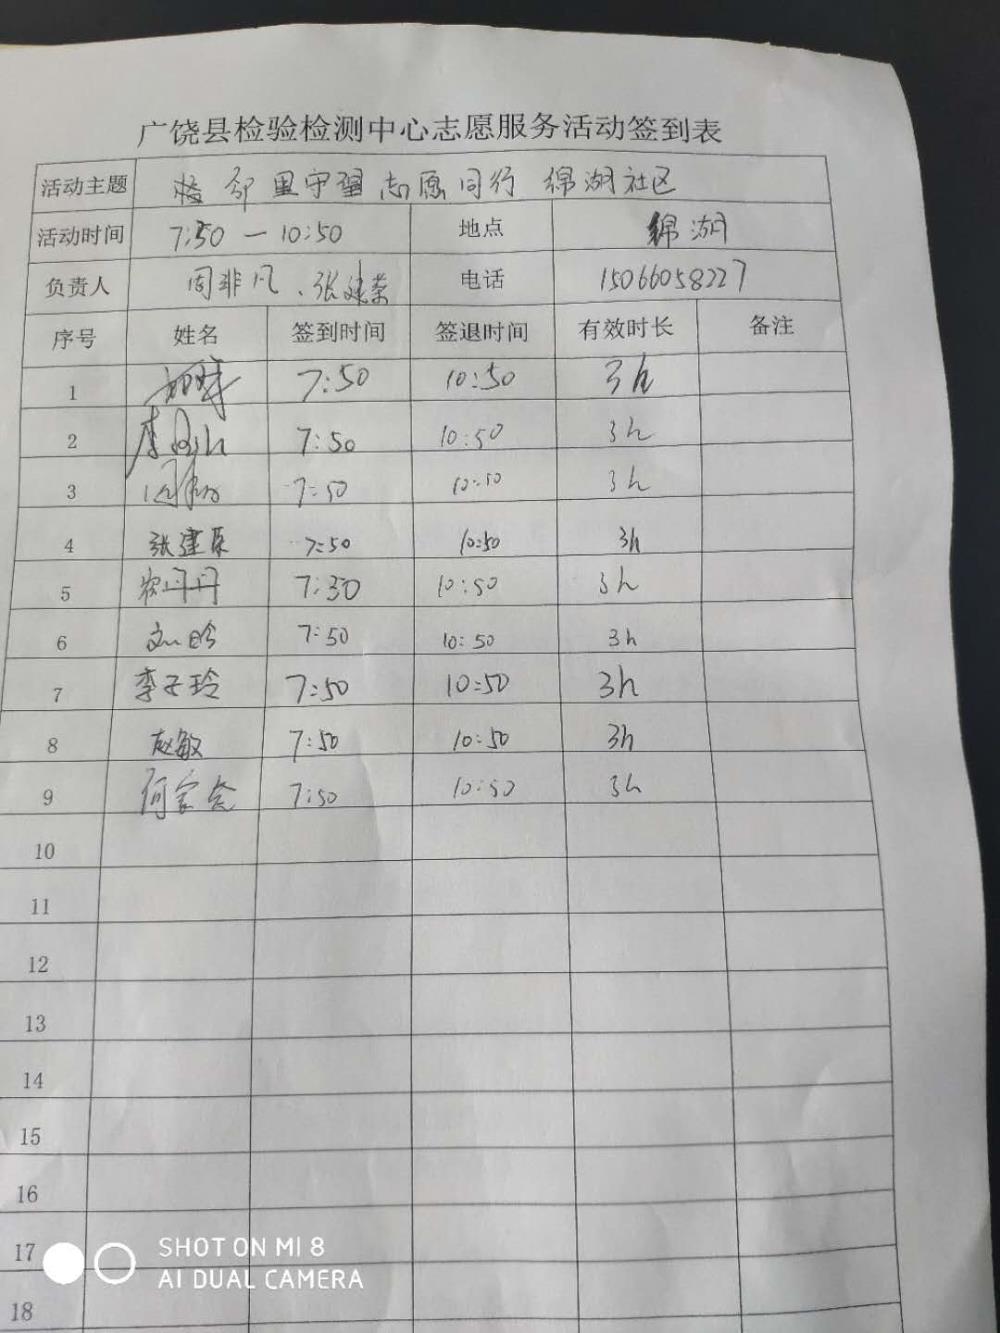 广饶县检验检测中心志愿服务活动签到表
活动主题 邻里守望 志愿同行 锦湖社区
活动时间 7:50 — 10:50 地点 锦湖
负责人 周非凡、张建荣 电话 15066058227
序号 姓名 签到时间 签退时间 有效时长 备注
1 7:50 10:50 3h
2 7:50 10:50 3h
3 7:50 10:50 3h
4 张建荣 7:50 10:50 3h
5 丹丹 7:30 10:50 3h
6 刘晗 7:50 10:50 3h
7 李子玲 7:50 10:50 3h
8 赵敏 7:50 10:50 3h
9 何家会 7:50 10:50 3h
10
11
12
13
14
15
16
17
18
SHOT ON MI 8
AI DUAL CAMERA